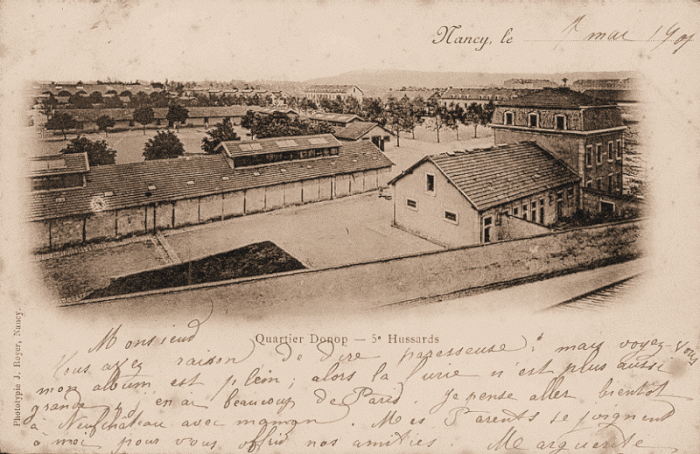 Nancy, le mai 190
Quartier Donop — 5e Hussards
Phototypie J. Royer, Nancy.
Monsieur
Vous avez raison de dire paresseuse ; mais voyez-vous
mon album est plein ; alors la furie n'est plus aussi
grande j'en ai beaucoup de Paris. Je pense aller bientôt
à Neufchâteau avec maman. Mes Parents se joignent
à moi pour vous offrir nos amitiés. Marguerite